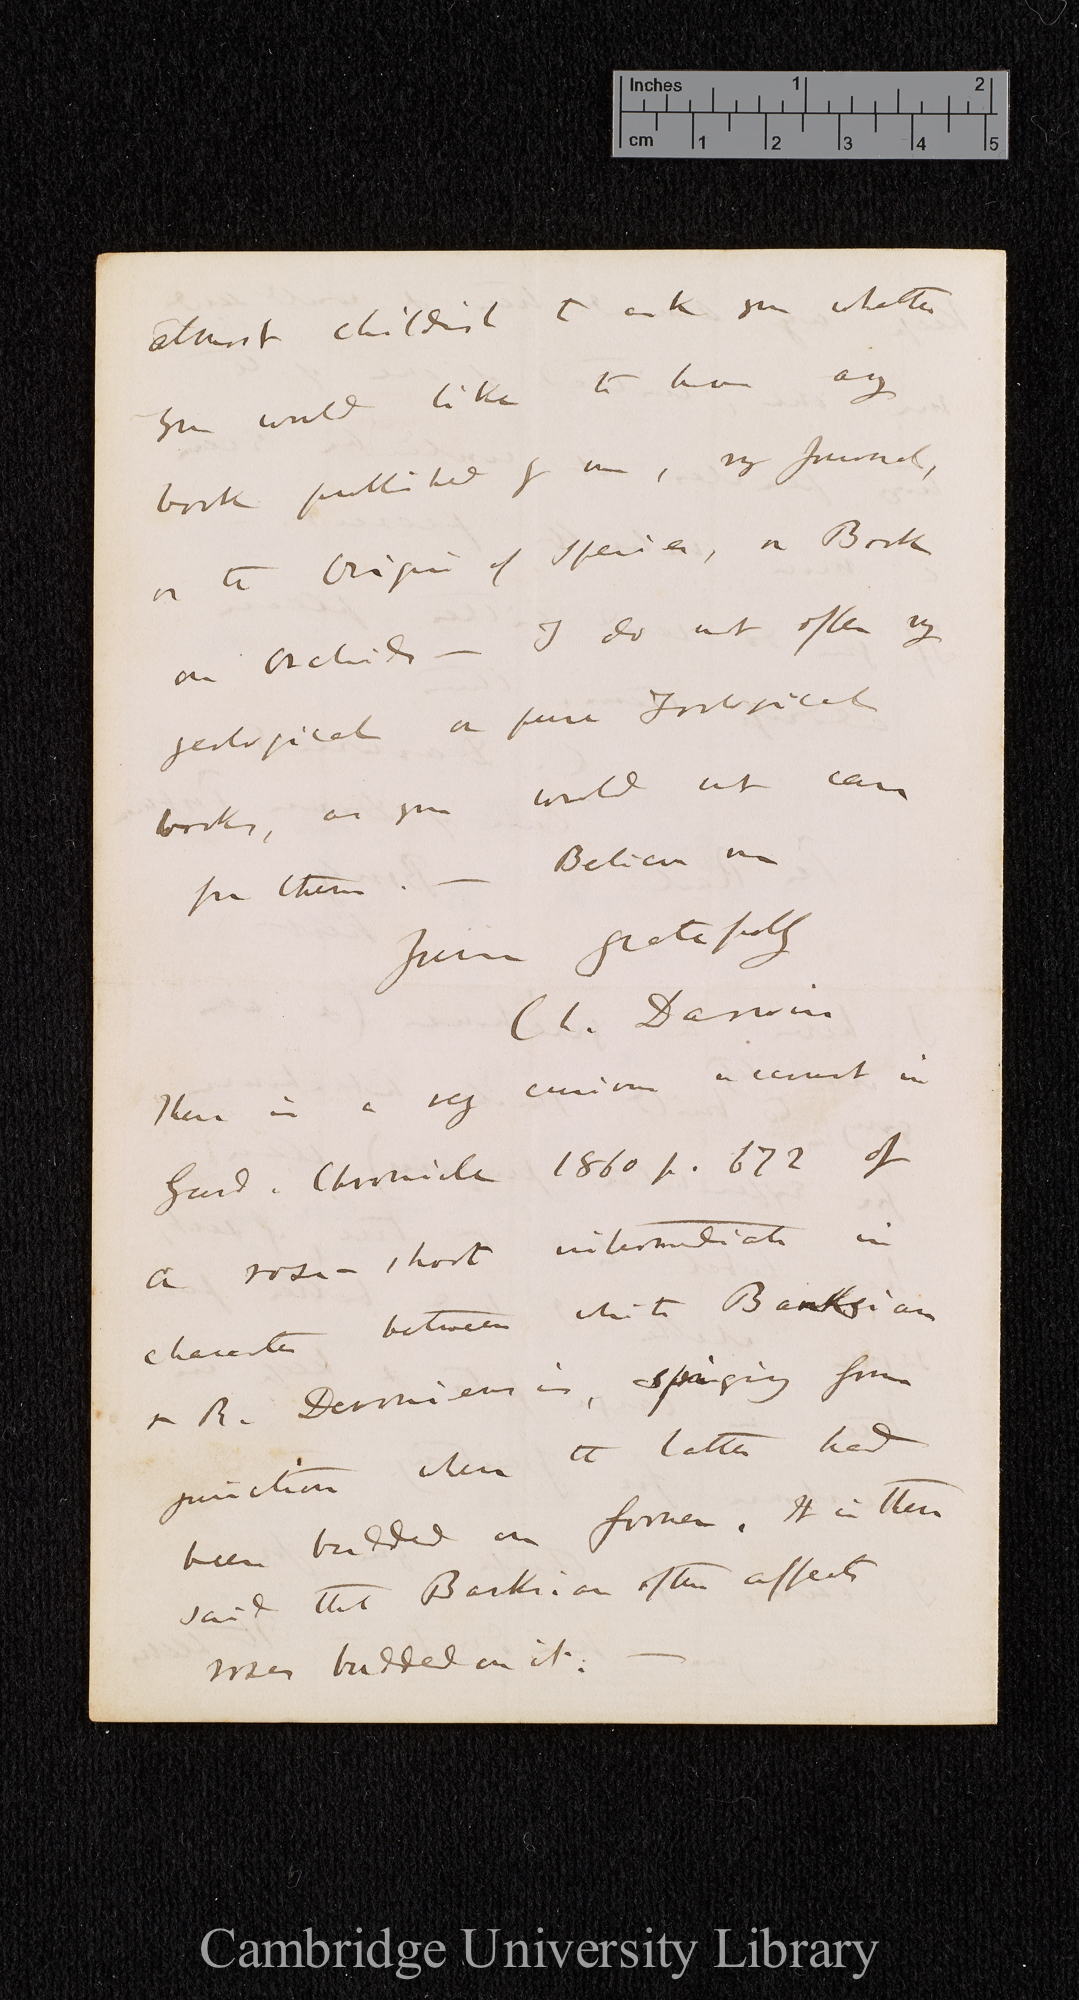 Inches 1 2
cm 1 2 3 4 5
almost childish to ask you whether
you would like to have any
book published by me, my Journal,
or the Origin of Species, or Book
on Orchids — I do not offer my
geological or pure Zoological
books, as you would not care
for them. — Believe me
Yours gratefully
Ch. Darwin
There is a very curious account in
Gard. Chronicle 1860 p. 672 of
a rose-shoot intermediate in
character between white Banksian
& R. Devoniensis, springing from
junction where the latter had
been budded on former. It is then
said that Banksian often affects
roses budded on it. —
Cambridge University Library